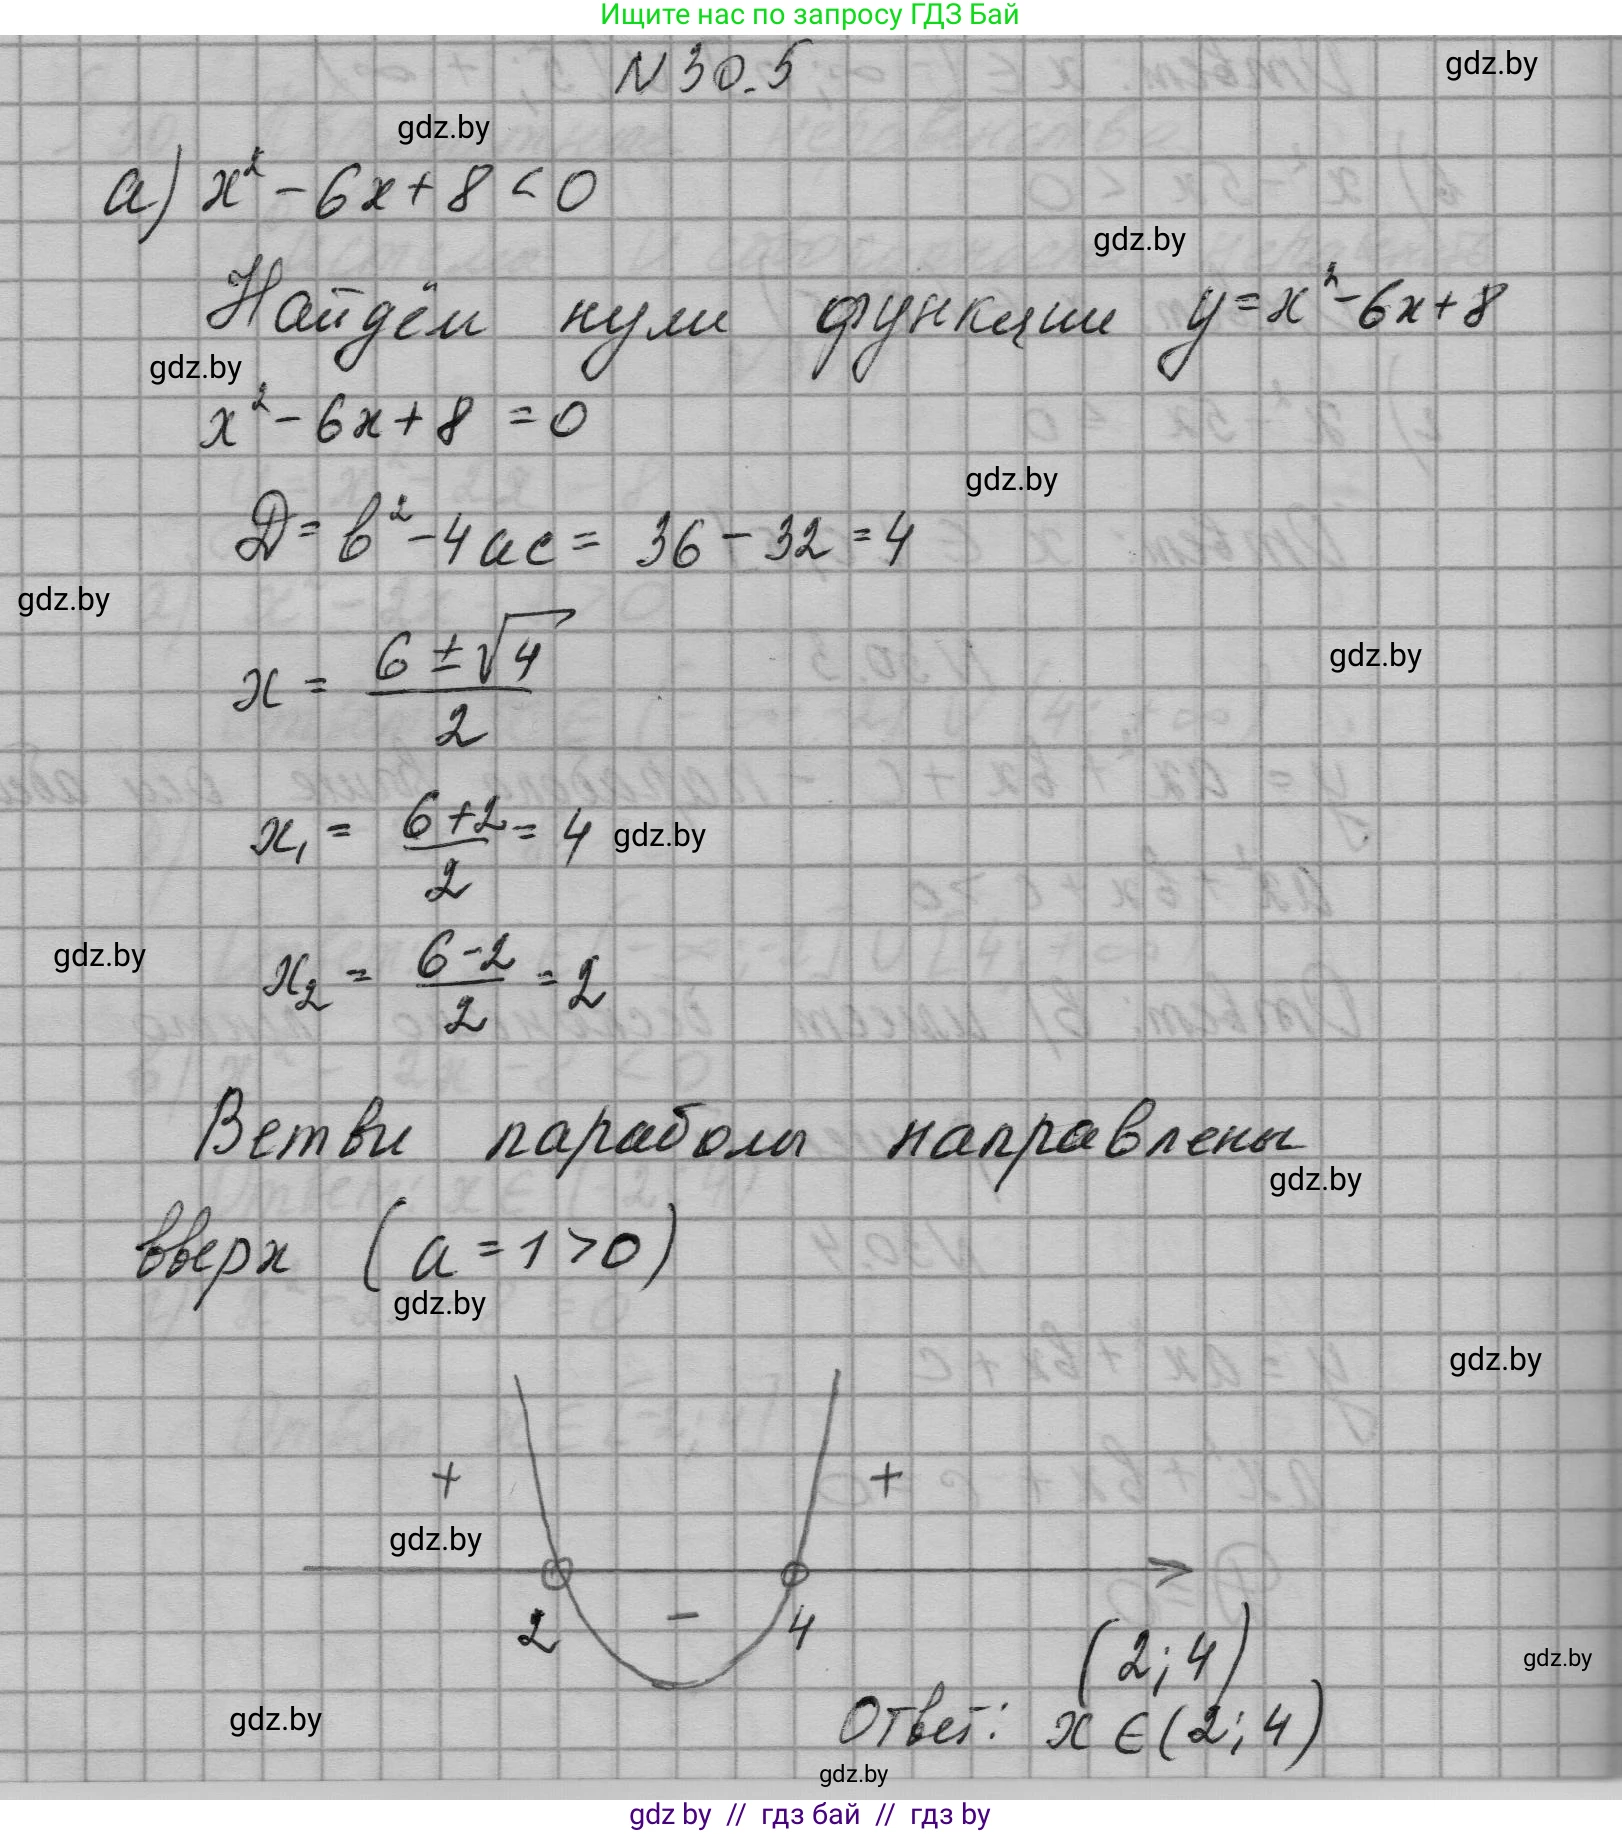 Ищите нас по запросу ГДЗ Бай
N 30.5
gdz.by
gdz.by
а) x² - 6x + 8 < 0
gdz.by
Найдём нули функции y = x² - 6x + 8
gdz.by
x² - 6x + 8 = 0
gdz.by
D = b² - 4ac = 36 - 32 = 4
gdz.by
x = (6 ± √4) / 2
gdz.by
x₁ = (6+2) / 2 = 4
gdz.by
gdz.by
x₂ = (6-2) / 2 = 2
Ветви параболы направлены
gdz.by
вверх (a = 1 > 0)
gdz.by
gdz.by
+ +
gdz.by
2 - 4
(2; 4)
gdz.by
gdz.by
Ответ: x ∈ (2; 4)
gdz.by
gdz by // гдз бай // гдз by